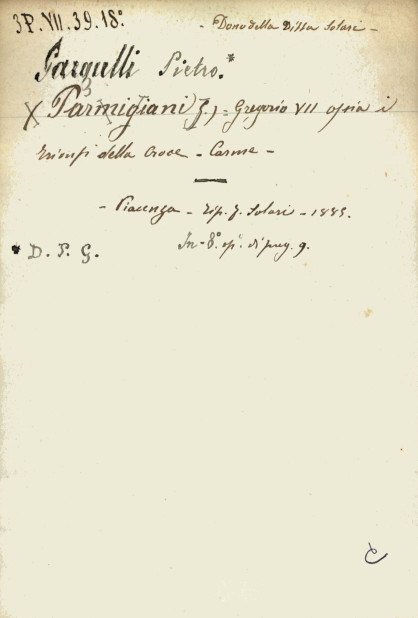 3P. VII. 39. 18°
- Dono della Ditta Solari -
Gargulli Pietro.*
X Parmigiani (f.) = Gregorio VII ossia i
trionfi della Croce - Carme -
- Piacenza - Tip. f. Solari - 1885.
In-8° op.° di pag. 9.
* D. P. G.